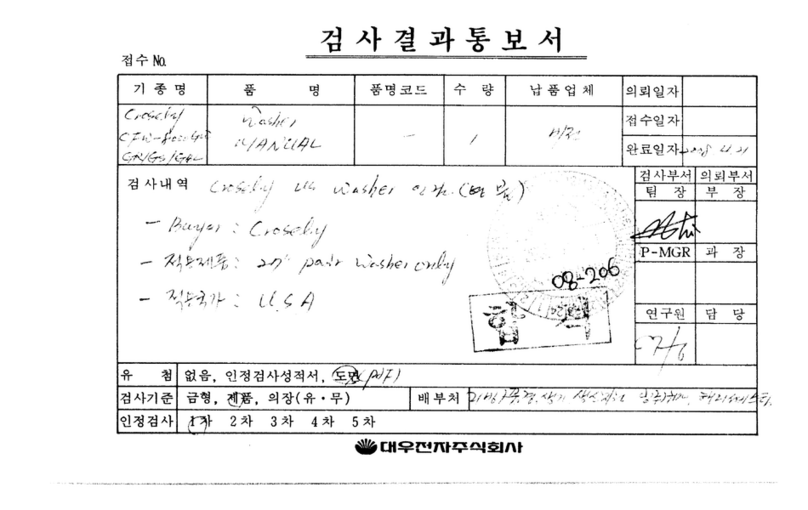 검사결과통보서
접수 No.
기종명 품 명 품명코드 수 량 납품업체 의뢰일자
Crosby Washer 접수일자
GR/GS/ MANUAL - 1 완료일자
검사내역 Crosby US Washer 검사부서 의뢰부서
팀 장 부 장
- Buyer : Crosby
- 적용제품 : 27" pair Washer only P-MGR 과 장
08-206
- 적용국가 : U.S.A
합 격 연구원 담 당
유 첨 없음, 인정검사성적서, 도면 (PDF)
검사기준 금형, 제품, 의장(유·무) 배부처
인정검사 1차 2차 3차 4차 5차
대우전자주식회사